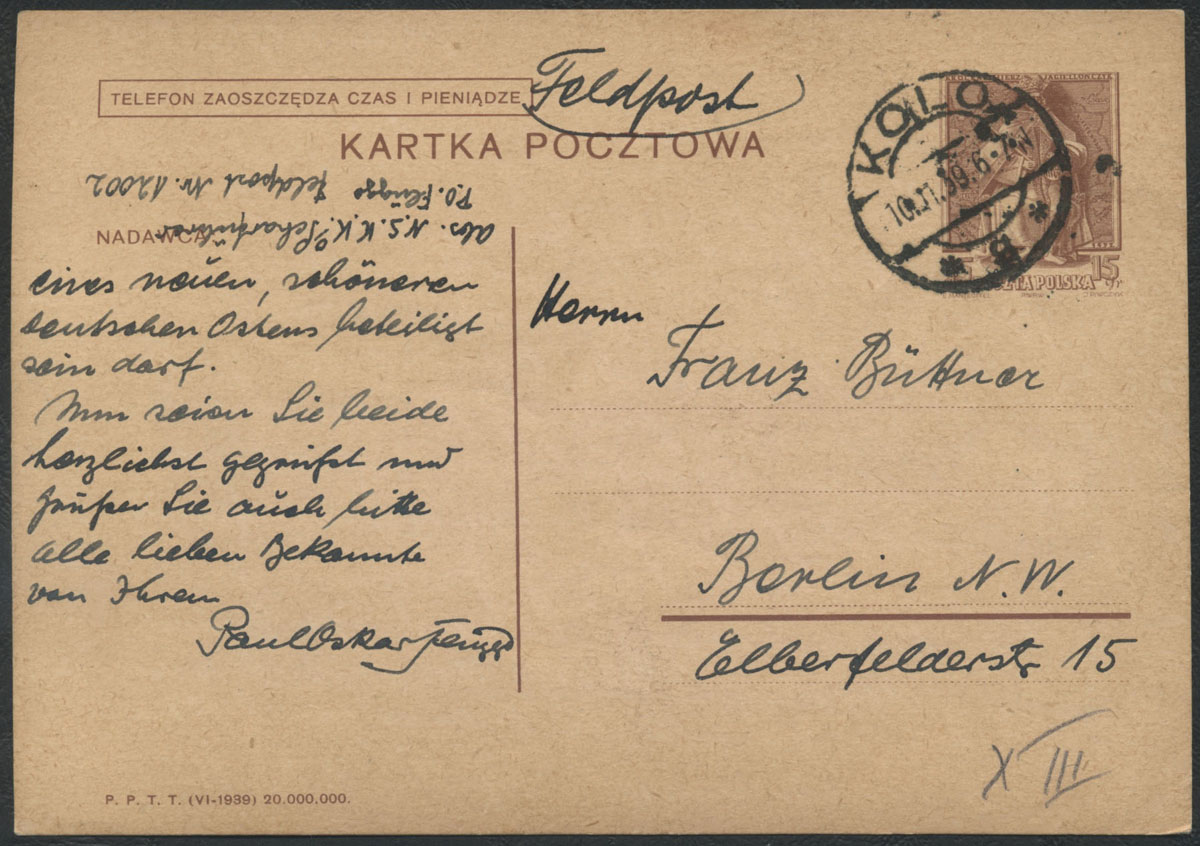 TELEFON ZAOSZCZĘDZA CZAS I PIENIĄDZE
Feldpost
KARTKA POCZTOWA
KOŁO
10.XI.39.6-7N
* B *
JAGIELLOŃCZYK
POCZTA POLSKA
15 gr
NADAWCA
Abs. N.S.K.K. Scharführer
P.O. Flügge
Feldpost Nr. 12002
eines neuen, schöneren
deutschen Ostens beteiligt
sein darf.
Nun seien Sie beide
herzlichst gegrüßt und
grüßen Sie auch bitte
alle lieben Bekannte
von Ihrem
Paul Oskar Flügge
Herrn
Franz Büttner
Berlin N.W.
Elberfelderstr 15
X III
P. P. T. T. (VI-1939) 20.000.000.